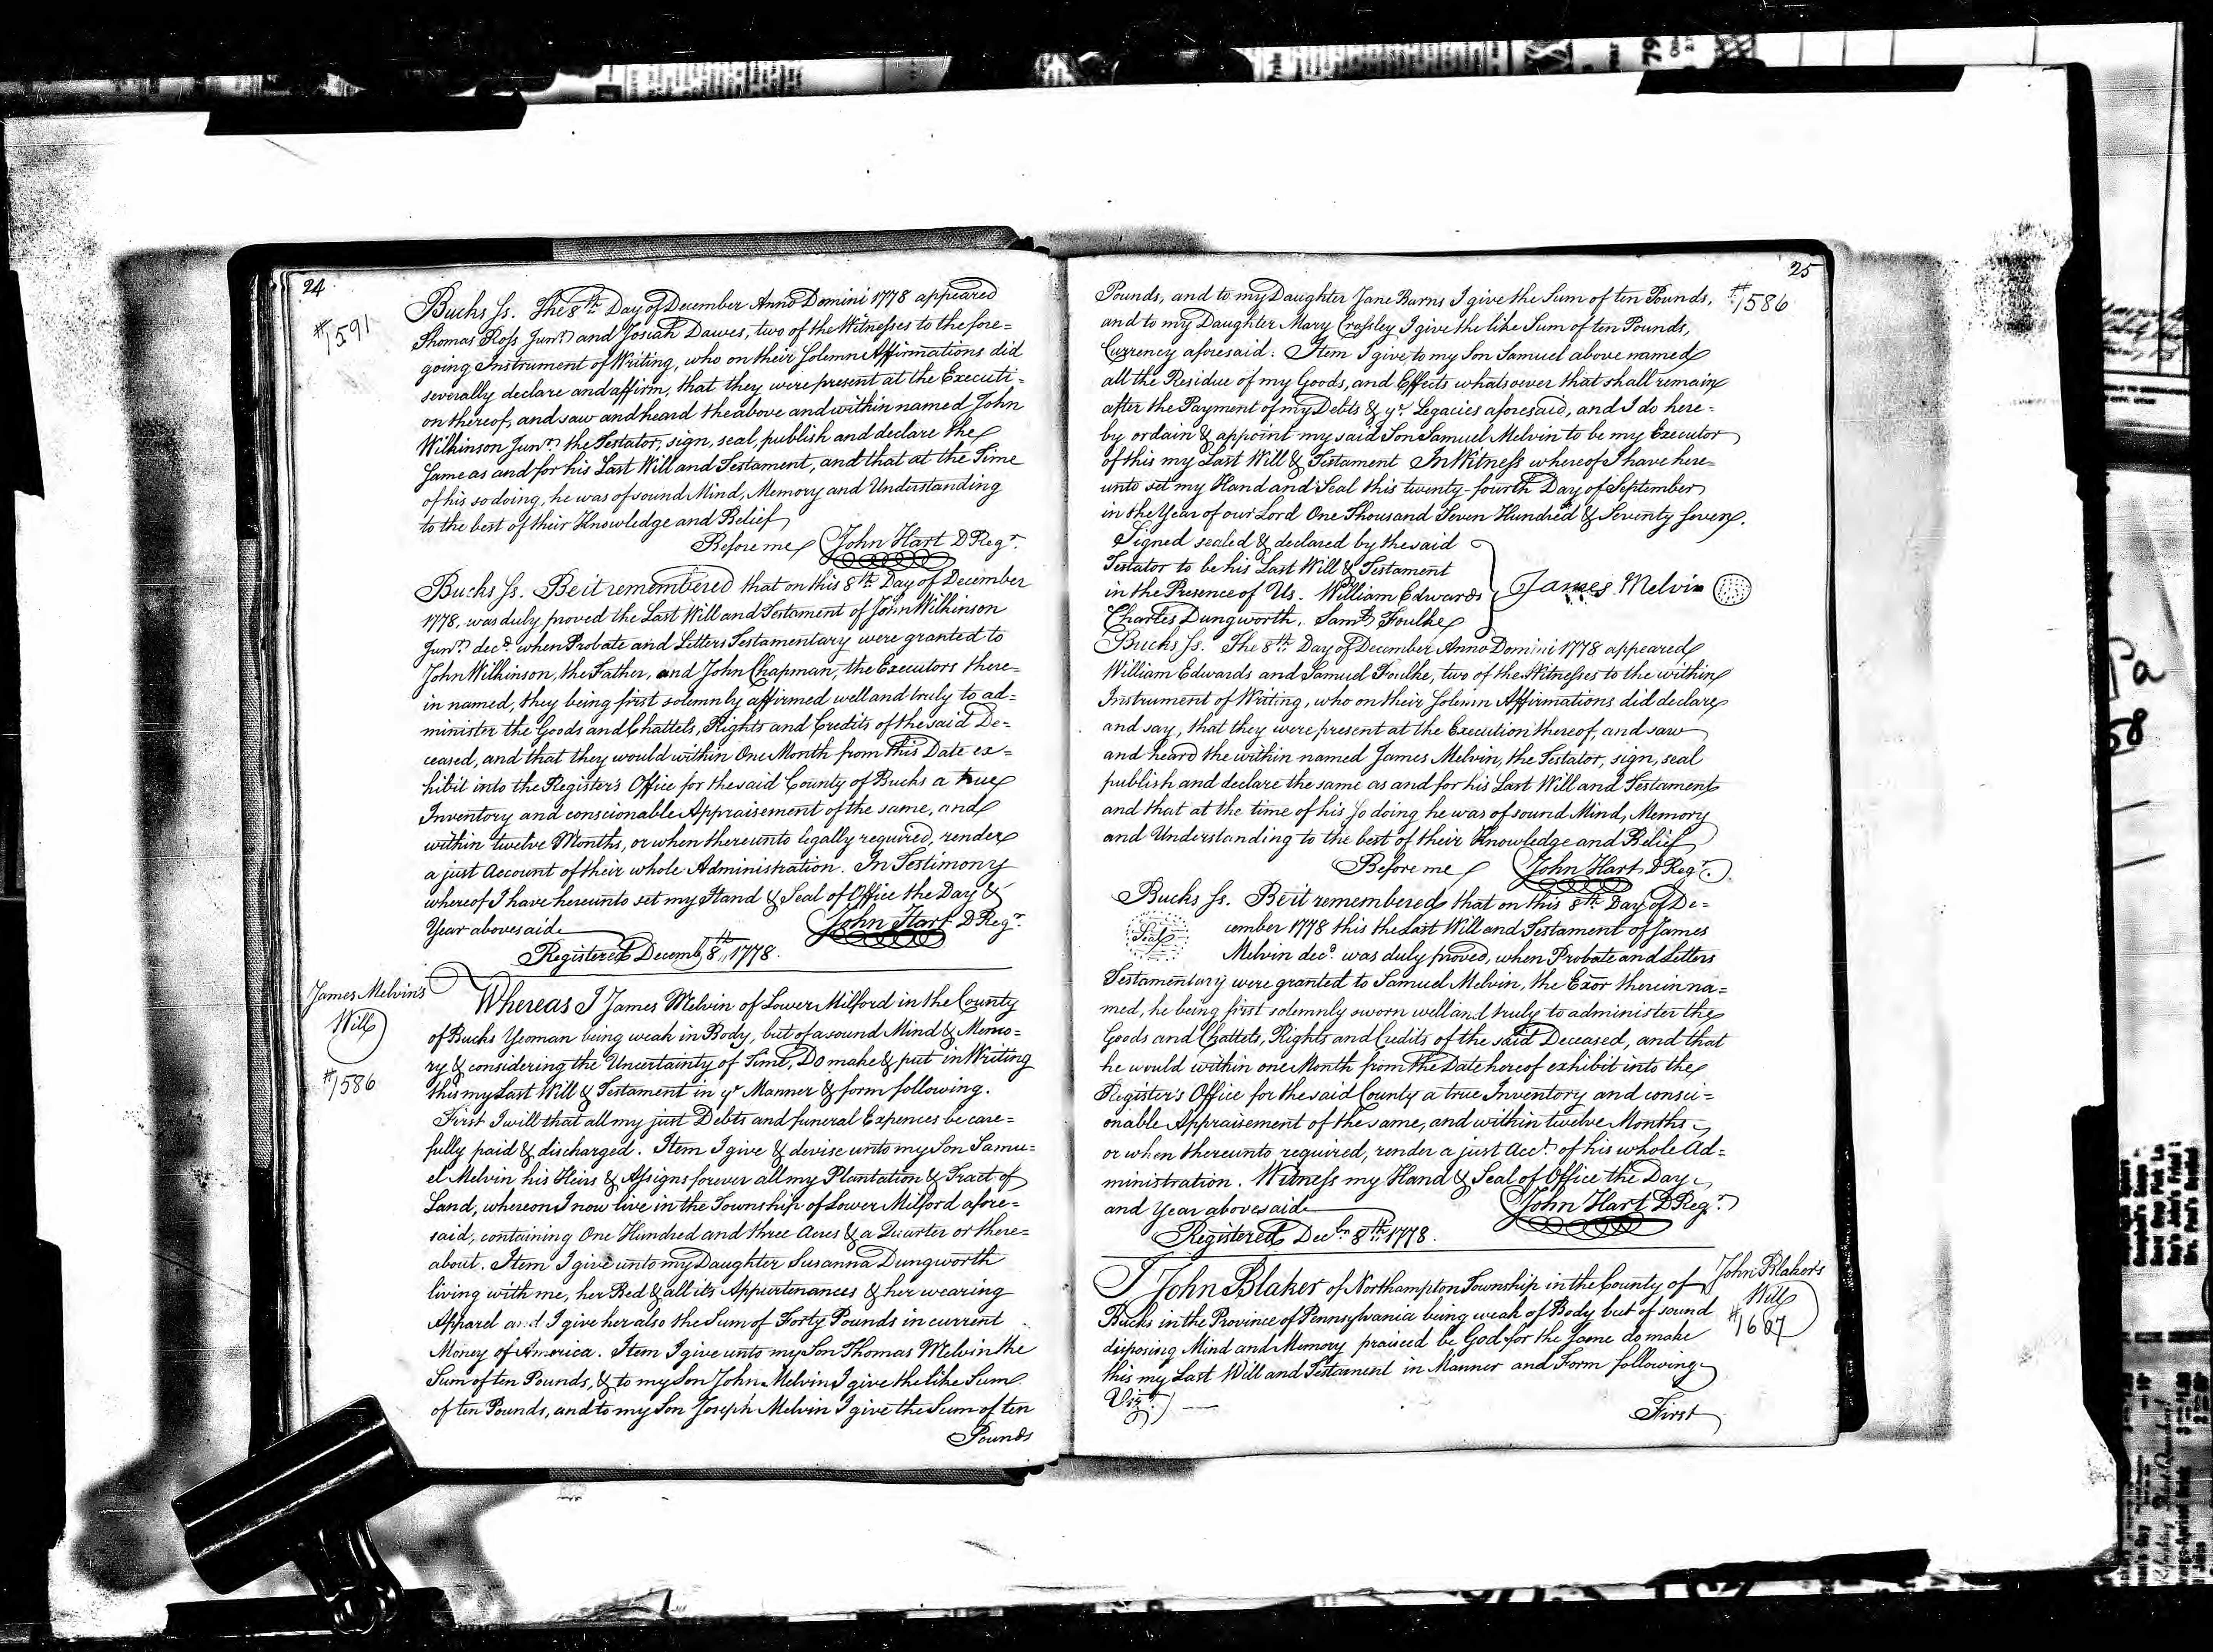 24
#1591
Bucks ss. The 8th Day of December Anno Domini 1778 appeared
Thomas Ross Junr and Josiah Dawes, two of the Witnesses to the fore=
going Instrument of Writing, who on their solemn Affirmations did
severally declare and affirm, that they were present at the Executi=
on thereof, and saw and heard the above and within named John
Wilkinson Junr the Testator, sign, seal, publish and declare the
same as and for his Last Will and Testament, and that at the Time
of his so doing, he was of sound Mind, Memory and Understanding
to the best of their Knowledge and Belief
Before me John Hart D Regr.
Bucks ss. Be it remembered that on this 8th Day of December
1778, was duly proved the Last Will and Testament of John Wilkinson
Junr. decd. when Probate and Letters Testamentary were granted to
John Wilkinson, the Father, and John Chapman, the Executors there=
in named, they being first solemnly affirmed well and truly to ad=
minister the Goods and Chattels, Rights and Credits of the said De=
ceased, and that they would within One Month from this Date ex=
hibit into the Register's Office for the said County of Bucks a true
Inventory and conscionable Appraisement of the same, and
within twelve Months, or when thereunto legally required, render
a just Account of their whole Administration. In Testimony
whereof I have hereunto set my Hand & Seal of Office the Day &
Year abovesaid
John Hart D Regr.
Registered Decemb 8th, 1778.
James Melvin's
Will
#1586
Whereas I James Melvin of Lower Milford in the County
of Bucks Yeoman being weak in Body, but of a sound Mind & Memo=
ry & considering the Uncertainty of Time, Do make & put in Writing
this my Last Will & Testament in ye Manner & form following.
First I will that all my just Debts and funeral Expences be care=
fully paid & discharged. Item I give & devise unto my Son Samu=
el Melvin his Heirs & Assigns forever all my Plantation & Tract of
Land, whereon I now live in the Township of Lower Milford afore=
said, containing One Hundred and three Acres & a Quarter or there=
about. Item I give unto my Daughter Susanna Dungworth
living with me, her Bed & all its Appurtenances & her wearing
Apparel and I give her also the Sum of Forty Pounds in current
Money of America. Item I give unto my Son Thomas Melvin the
Sum of ten Pounds, & to my Son John Melvin I give the like Sum
of ten Pounds, and to my Son Joseph Melvin I give the Sum of ten
Pounds
25
#1586
Pounds, and to my Daughter Jane Burns I give the Sum of ten Pounds,
and to my Daughter Mary Crossley I give the like Sum of ten Pounds,
Currency aforesaid. Item I give to my Son Samuel above named
all the Residue of my Goods, and Effects whatsoever that shall remain
after the Payment of my Debts & ye. Legacies aforesaid, and I do here=
by ordain & appoint my said Son Samuel Melvin to be my Executor
of this my Last Will & Testament In Witness whereof I have here=
unto set my Hand and Seal this twenty-fourth Day of September
in the Year of our Lord One Thousand Seven Hundred & Seventy Seven.
Signed sealed & declared by the said
Testator to be his Last Will & Testament
in the Presence of Us. William Edwards
James Melvin
Charles Dungworth, Saml Foulke
Bucks ss. The 8th Day of December Anno Domini 1778 appeared
William Edwards and Samuel Foulke, two of the Witnesses to the within
Instrument of Writing, who on their solemn Affirmations did declare
and say, that they were present at the Execution thereof, and saw
and heard the within named James Melvin, the Testator, sign, seal
publish and declare the same as and for his Last Will and Testament
and that at the time of his so doing he was of sound Mind, Memory
and Understanding to the best of their Knowledge and Belief
Before me John Hart D Regr.
Bucks ss. Be it remembered that on this 8th Day of De=
Seal
cember 1778 this the Last Will and Testament of James
Melvin decd. was duly proved, when Probate and Letters
Testamentary were granted to Samuel Melvin, the Exor therein na=
med, he being first solemnly sworn well and truly to administer the
Goods and Chattels, Rights and Credits of the said Deceased, and that
he would within one Month from the Date hereof exhibit into the
Register's Office for the said County a true Inventory and consci=
onable Appraisement of the same, and within twelve Months
or when thereunto required, render a just Acct of his whole Ad=
ministration. Witness my Hand & Seal of Office the Day
and Year abovesaid
John Hart D Regr.
Registered Decbr 8th 1778.
John Blaker's
Will
#1607
I John Blaker of Northampton Township in the County of
Bucks in the Province of Pennsylvania being weak of Body but of sound
disposing Mind and Memory praised be God for the same do make
this my Last Will and Testament in Manner and Form following
Viz.
First